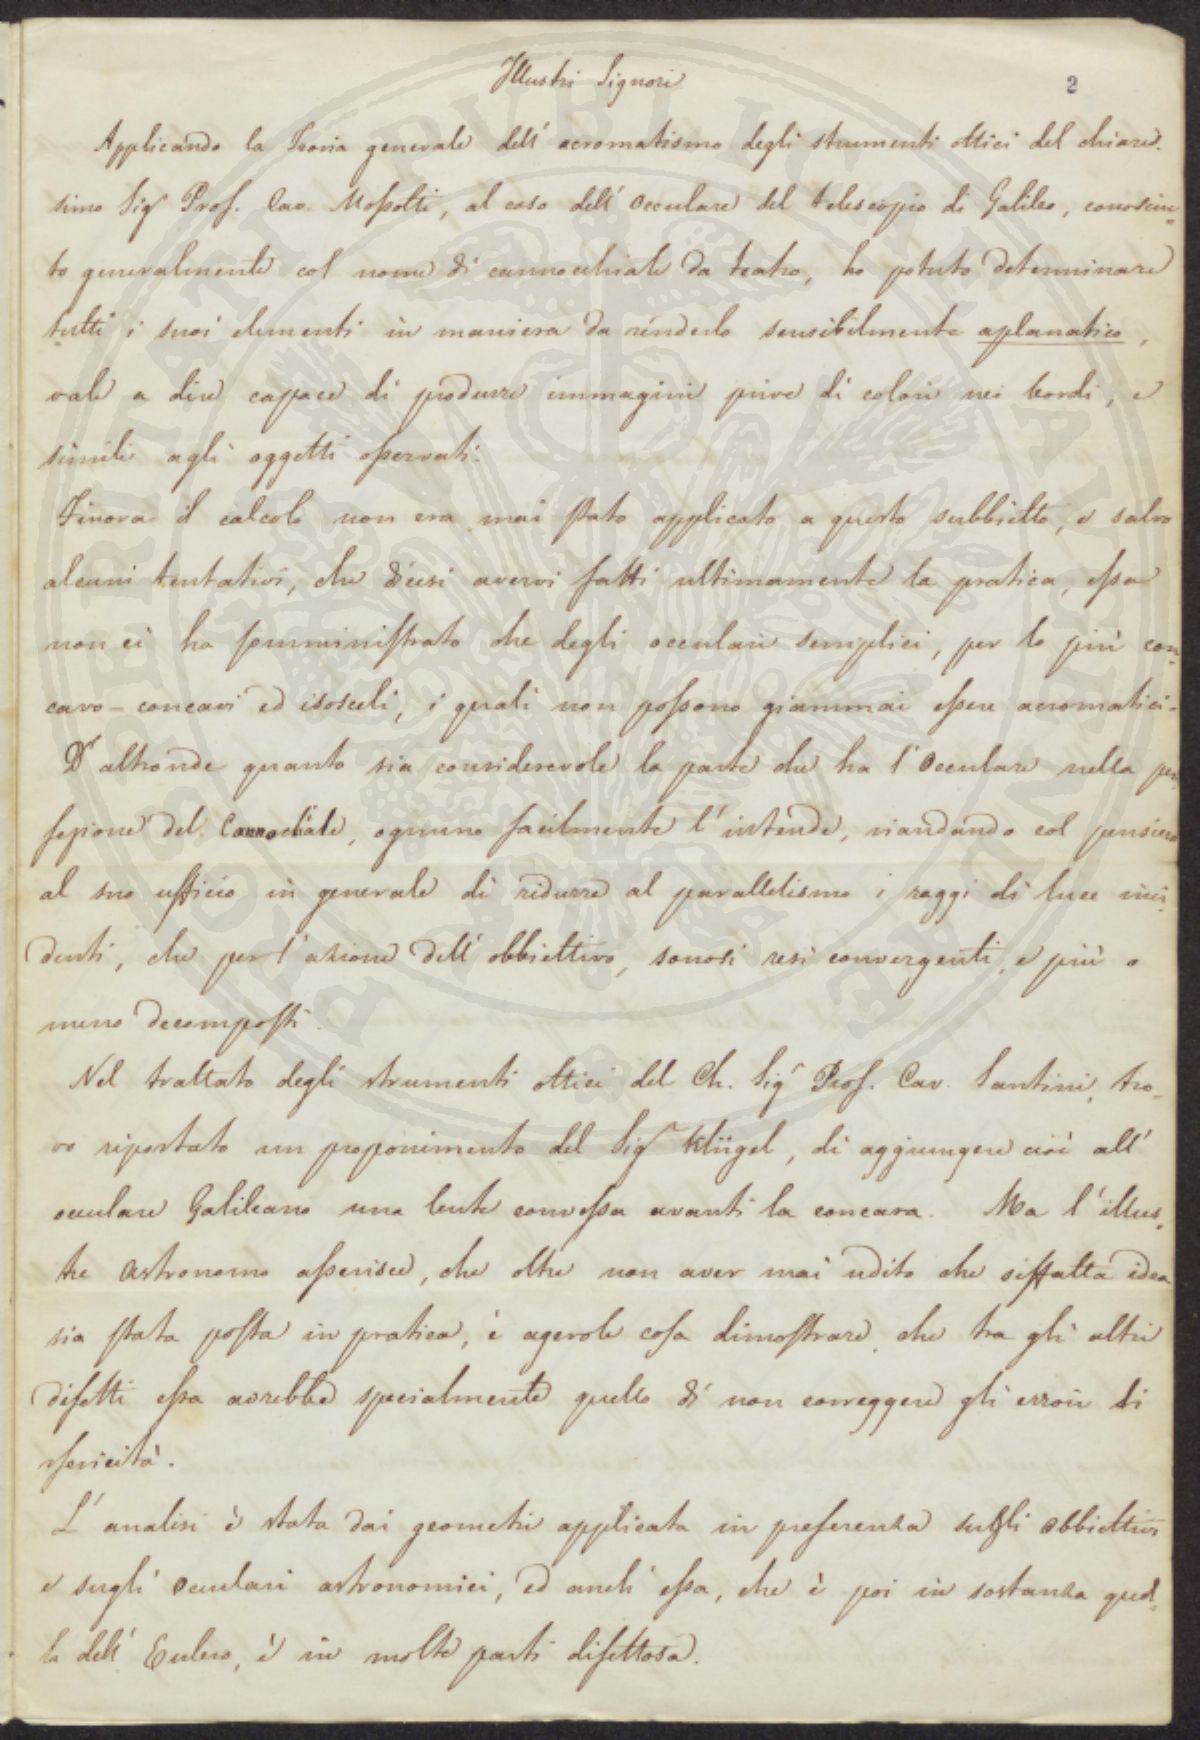 Illustri Signori
2
Applicando la Teoria generale dell' acromatismo degli strumenti ottici del chiaris.
simo Sig.r Prof. Cav. Mossotti, al caso dell' Occulare del telescopio di Galileo, conosciu-
to generalmente col nome di cannocchiale da teatro, ho potuto determinare
tutti i suoi elementi in maniera da renderlo sensibilmente aplanatico,
vale a dire capace di produrre immagini prive di colori nei bordi, e
simili agli oggetti osservati.
Finora il calcolo non era mai stato applicato a questo subbietto, e salvo
alcuni tentativi, che dicesi avervi fatti ultimamente la pratica, essa
non ci ha somministrato che degli occulari semplici, per lo più con-
cavo-concavi ed isosceli, i quali non possono giammai essere acromatici.
D' altronde quanto sia considerevole la parte che ha l' Occulare nella per-
fezione del Cannochiale, ognuno facilmente l' intende, riandando col pensiero
al suo ufficio in generale di ridurre al parallelismo i raggi di luce inci-
denti, che per l' azione dell' obbiettivo, sonosi resi convergenti, e più o
meno decomposti.
Nel trattato degli strumenti ottici del Ch. Sig.r Prof. Cav. Santini, tro-
vo riportato un proponimento del Sig.r Klügel, di aggiungere cioè all'
occulare Galileano una lente convessa avanti la concava. Ma l' illus-
tre Astronomo asserisce, che oltre non aver mai udito che siffatta idea
sia stata posta in pratica, è agevole cosa dimostrare, che tra gli altri
difetti essa avrebbe specialmente quello di non correggere gli errori di
sfericità.
L' analisi è stata dai geometri applicata in preferenza sugli Obbiettivi
e sugli Occulari astronomici, ed anch' essa, che è poi in sostanza quel-
la dell' Eulero, è in molte parti difettosa.